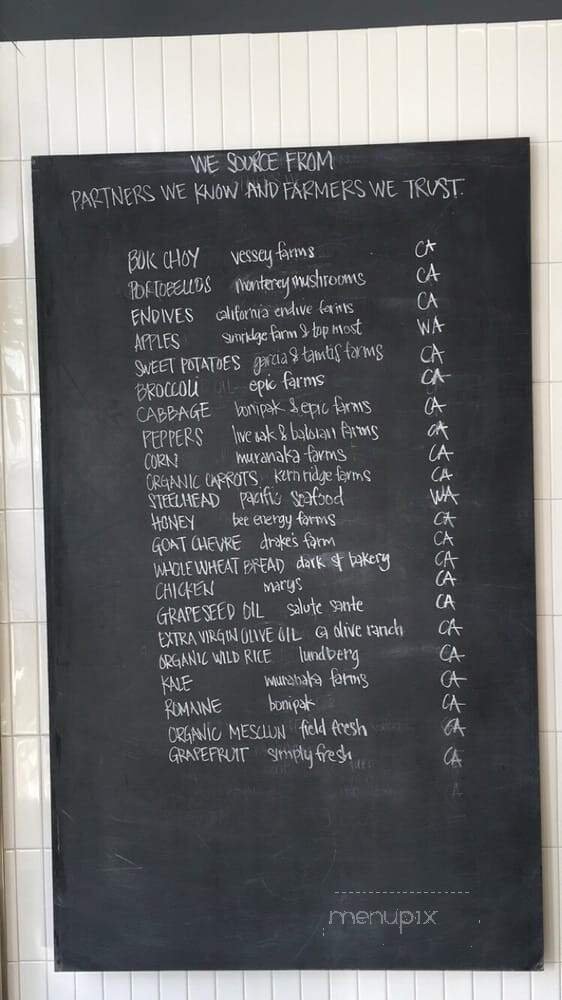 WE SOURCE FROM
PARTNERS WE KNOW AND FARMERS WE TRUST.
BOK CHOY vessey farms CA
PORTOBELLOS monterey mushrooms CA
ENDIVES california endive farms CA
APPLES sunridge farm & top most WA
SWEET POTATOES garcia & farms CA
BROCCOLI epic farms CA
CABBAGE bonipak & epic farms CA
PEPPERS live oak & farms CA
CORN muranaka farms CA
ORGANIC CARROTS, kern ridge farms CA
STEELHEAD pacific seafood WA
HONEY bee energy farms CA
GOAT CHEVRE drake's farm CA
WHOLE WHEAT BREAD dark st bakery CA
CHICKEN marys CA
GRAPESEED OIL salute sante CA
EXTRA VIRGIN OLIVE OIL ca olive ranch CA
ORGANIC WILD RICE lundberg CA
KALE muranaka farms CA
ROMAINE bonipak CA
ORGANIC MESCLUN field fresh CA
GRAPEFRUIT simply fresh CA
menupix